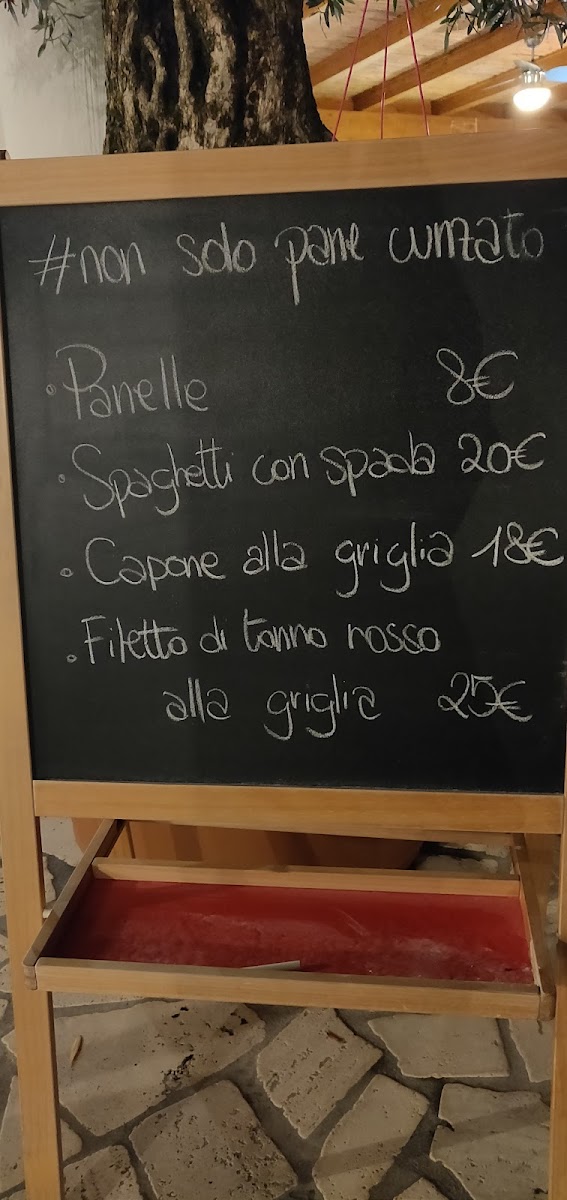 #non solo pane cunzato
• Panelle 8€
• Spaghetti con spada 20€
• Capone alla griglia 18€
• Filetto di tonno rosso
alla griglia 25€